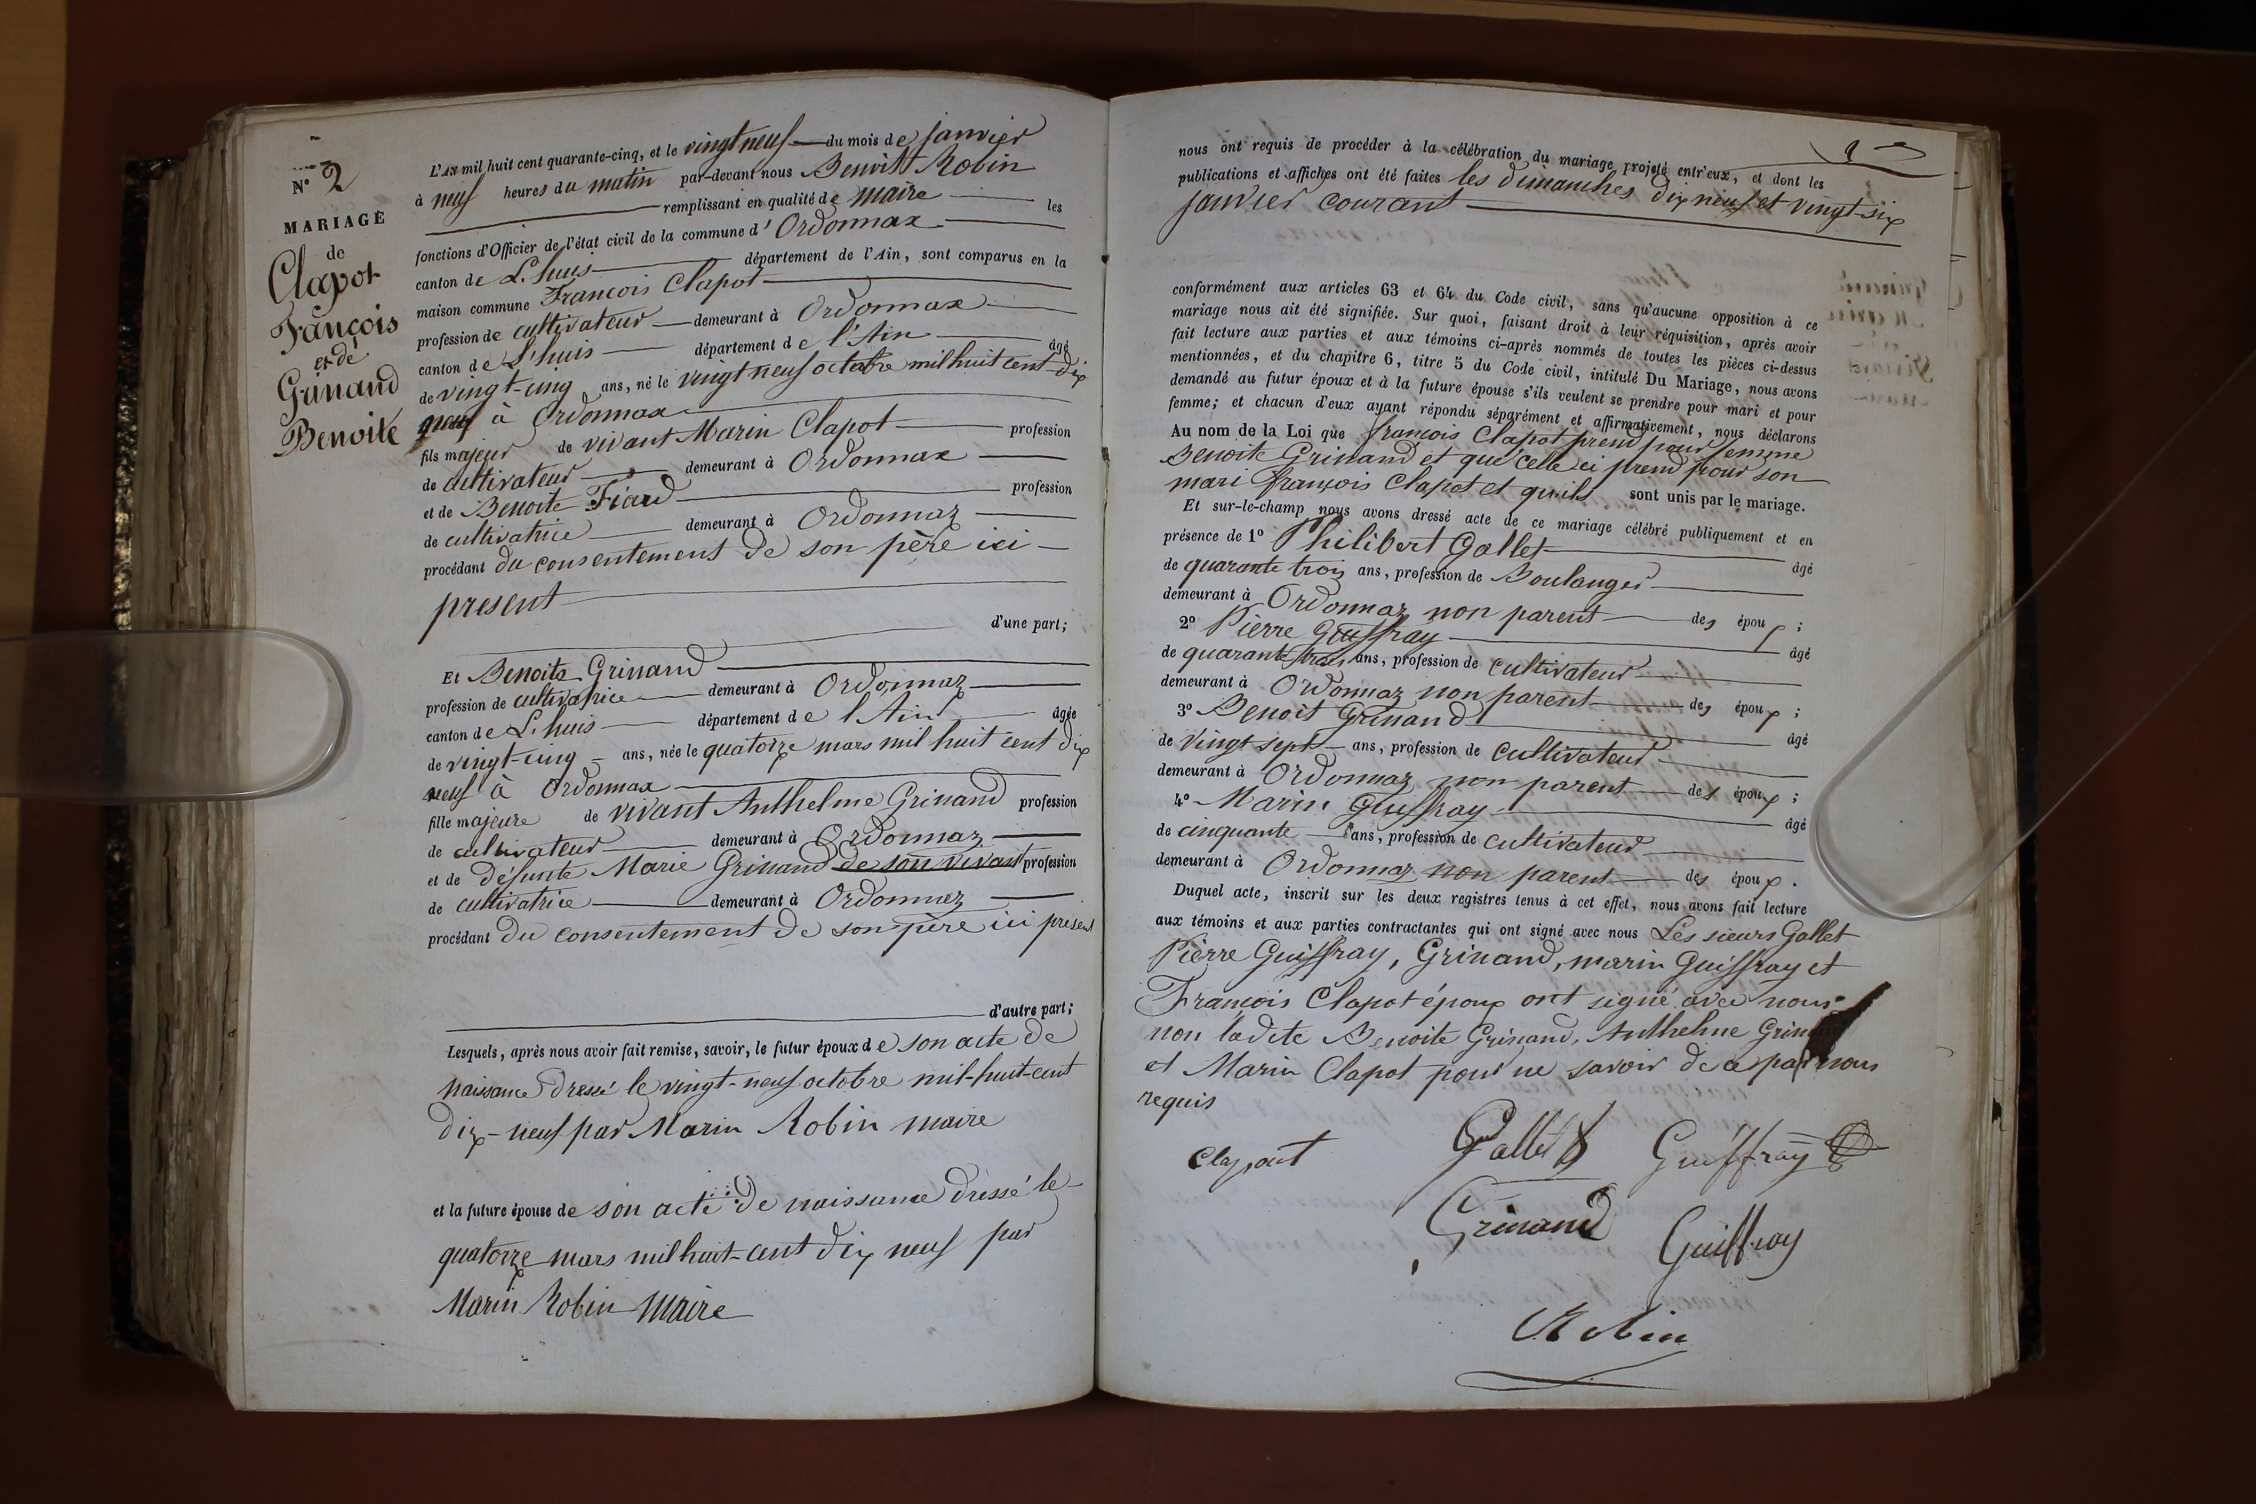 N° 2
MARIAGE
de
Clapot
François
et de
Grinand
Benoite
L'AN mil huit cent quarante-cinq, et le vingt neuf du mois de janvier
à neuf heures du matin par-devant nous Benoit Robin
remplissant en qualité de maire les
fonctions d'Officier de l'état civil de la commune d'Ordonnax
canton de L.huis département de l'Ain, sont comparus en la
maison commune François Clapot
profession de cultivateur demeurant à Ordonnax
canton de L'huis département de l'Ain âgé
de vingt-cinq ans, né le vingt neuf octobre mil huit cent dix
neuf à Ordonnax
fils majeur de vivant Marin Clapot profession
de cultivateur demeurant à Ordonnax
et de Benoite Fiard profession
de cultivatrice demeurant à Ordonnaz
procédant du consentement de son père ici
present
d'une part;
Et Benoite Grinand
profession de cultivatrice demeurant à Ordonnaz
canton de L.huis département de l'Ain âgée
de vingt-cinq ans, née le quatorze mars mil huit cent dix
neuf à Ordonnax
fille majeure de vivant Anthelme Grinand profession
de cultivateur demeurant à Ordonnaz
et de défunte Marie Grinand de son vivant profession
de cultivatrice demeurant à Ordonnaz
procédant du consentement de son père ici présent
d'autre part;
Lesquels, après nous avoir fait remise, savoir, le futur époux de son acte de
naissance dressé le vingt-neuf octobre mil-huit-cent
dix-neuf par Marin Robin maire
et la future épouse de son acte de naissance dressé le
quatorze mars mil huit-cent dix neuf par
Marin Robin Maire
nous ont requis de procéder à la célébration du mariage projeté entr'eux, et dont les
publications et affiches ont été faites les dimanches dix neuf et vingt-six
janvier courant
conformément aux articles 63 et 64 du Code civil, sans qu'aucune opposition à ce
mariage nous ait été signifiée. Sur quoi, faisant droit à leur réquisition, après avoir
fait lecture aux parties et aux témoins ci-après nommés de toutes les pièces ci-dessus
mentionnées, et du chapitre 6, titre 5 du Code civil, intitulé Du Mariage, nous avons
demandé au futur époux et à la future épouse s'ils veulent se prendre pour mari et pour
femme; et chacun d'eux ayant répondu séparément et affirmativement, nous déclarons
Au nom de la Loi que françois Clapot prend pour femme
Benoite Grinand et que celle ci prend pour son
mari françois Clapot et qu'ils sont unis par le mariage.
Et sur-le-champ nous avons dressé acte de ce mariage célébré publiquement et en
présence de 1° Philibert Gallet âgé
de quarante trois ans, profession de Boulanger
demeurant à Ordonnaz non parent des époux ;
2° Pierre Guiffray âgé
de quarante trois ans, profession de cultivateur
demeurant à Ordonnaz non parent des époux ;
3° Benoit Grinand âgé
de vingt sept ans, profession de cultivateur
demeurant à Ordonnaz non parent des époux ;
4° Marin Guiffray âgé
de cinquante ans, profession de cultivateur
demeurant à Ordonnaz non parent des époux.
Duquel acte, inscrit sur les deux registres tenus à cet effet, nous avons fait lecture
aux témoins et aux parties contractantes qui ont signé avec nous Les sieurs Gallet
Pierre Guiffray, Grinand, marin Guiffray et
François Clapot époux ont signé avec nous
non ladite Benoite Grinand, Anthelme
et Marin Clapot pour ne savoir de ce par nous
requis
Clapout Gallet Guiffray
Grinand Guiffray
Robin